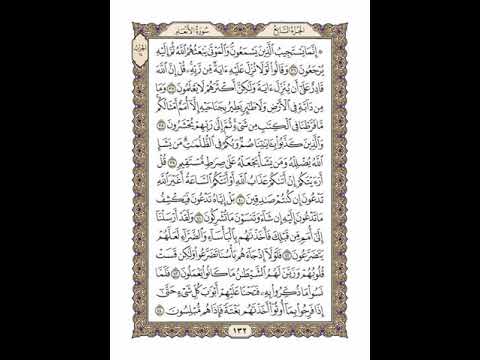 الجزء السابع
سورة الأنعام
إِنَّمَا يَسْتَجِيبُ الَّذِينَ يَسْمَعُونَ وَالْمَوْتَىٰ يَبْعَثُهُمُ اللَّهُ ثُمَّ إِلَيْهِ
يُرْجَعُونَ ٣٦ وَقَالُوا لَوْلَا نُزِّلَ عَلَيْهِ آيَةٌ مِّن رَّبِّهِ قُلْ إِنَّ اللَّهَ
قَادِرٌ عَلَىٰ أَن يُنَزِّلَ آيَةً وَلَٰكِنَّ أَكْثَرَهُمْ لَا يَعْلَمُونَ ٣٧ وَمَا
مِن دَابَّةٍ فِي الْأَرْضِ وَلَا طَائِرٍ يَطِيرُ بِجَنَاحَيْهِ إِلَّا أُمَمٌ أَمْثَالُكُم
مَّا فَرَّطْنَا فِي الْكِتَابِ مِن شَيْءٍ ثُمَّ إِلَىٰ رَبِّهِمْ يُحْشَرُونَ ٣٨
وَالَّذِينَ كَذَّبُوا بِآيَاتِنَا صُمٌّ وَبُكْمٌ فِي الظُّلُمَاتِ مَن يَشَإِ
اللَّهُ يُضْلِلْهُ وَمَن يَشَأْ يَجْعَلْهُ عَلَىٰ صِرَاطٍ مُّسْتَقِيمٍ ٣٩ قُلْ
أَرَأَيْتَكُمْ إِنْ أَتَاكُمْ عَذَابُ اللَّهِ أَوْ أَتَتْكُمُ السَّاعَةُ أَغَيْرَ اللَّهِ
تَدْعُونَ إِن كُنتُمْ صَادِقِينَ ٤٠ بَلْ إِيَّاهُ تَدْعُونَ فَيَكْشِفُ
مَا تَدْعُونَ إِلَيْهِ إِن شَاءَ وَتَنسَوْنَ مَا تُشْرِكُونَ ٤١ وَلَقَدْ أَرْسَلْنَا
إِلَىٰ أُمَمٍ مِّن قَبْلِكَ فَأَخَذْنَاهُم بِالْبَأْسَاءِ وَالضَّرَّاءِ لَعَلَّهُمْ
يَتَضَرَّعُونَ ٤٢ فَلَوْلَا إِذْ جَاءَهُم بَأْسُنَا تَضَرَّعُوا وَلَٰكِن قَسَتْ
قُلُوبُهُمْ وَزَيَّنَ لَهُمُ الشَّيْطَانُ مَا كَانُوا يَعْمَلُونَ ٤٣ فَلَمَّا
نَسُوا مَا ذُكِّرُوا بِهِ فَتَحْنَا عَلَيْهِمْ أَبْوَابَ كُلِّ شَيْءٍ حَتَّىٰ
إِذَا فَرِحُوا بِمَا أُوتُوا أَخَذْنَاهُم بَغْتَةً فَإِذَا هُم مُّبْلِسُونَ ٤٤
١٣٢